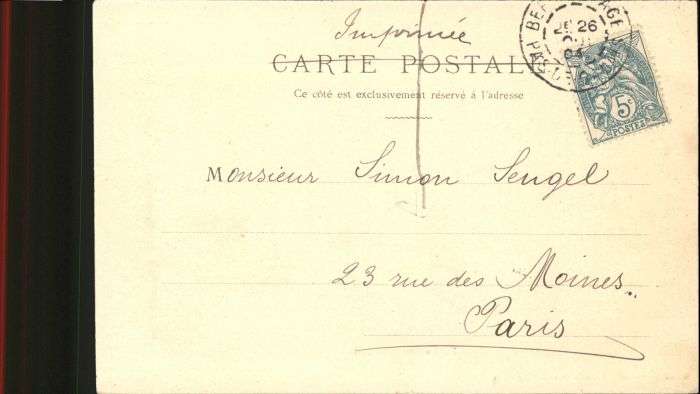 Imprimée
CARTE POSTALE
Ce côté est exclusivement réservé à l'adresse
Monsieur Simon Sengel
23 rue des Moines.
Paris
26
5c
POSTES